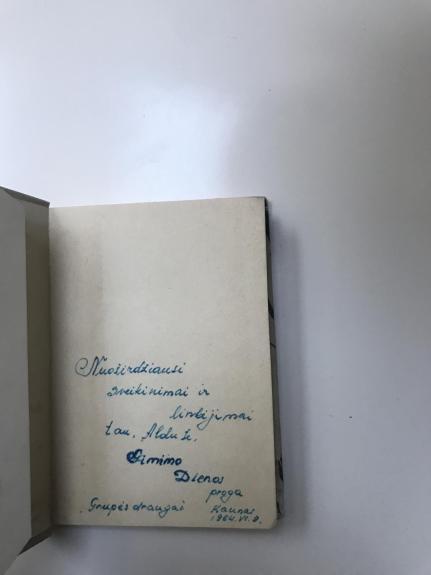 Nuoširdžiausi
sveikinimai ir
linkėjimai
tau, Aldute,
Gimimo
Dienos
proga
Grupės draugai Kaunas
1964.VI.9.